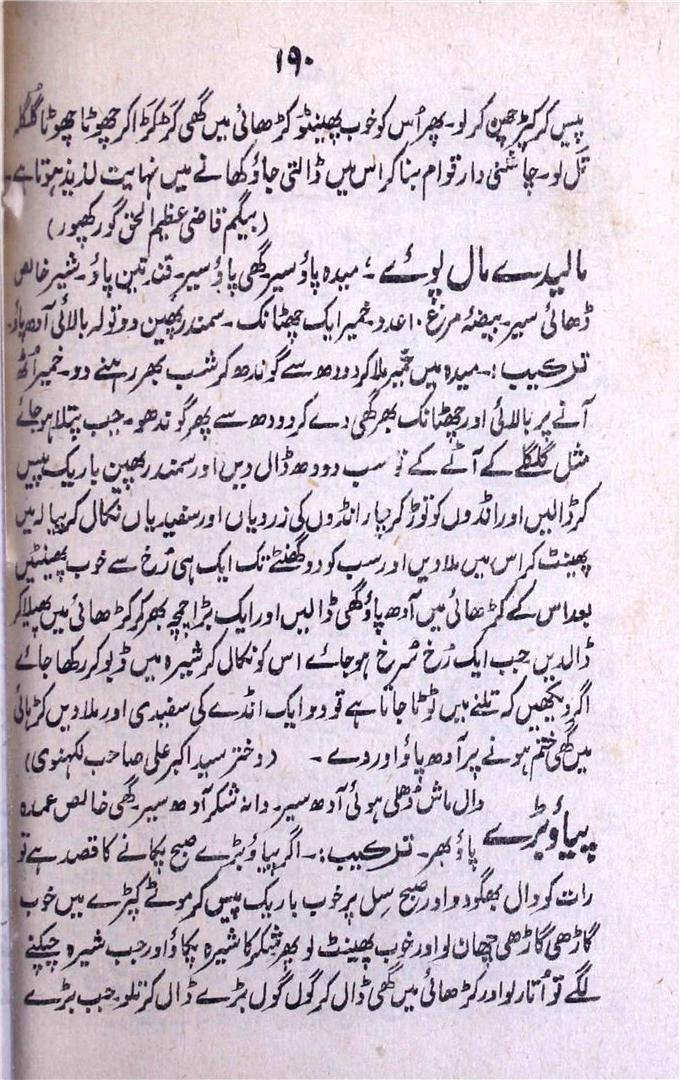 ۱۹۰
پیس کر کپڑ چھن کر لو۔ پھر اُس کو خوب پھینٹو کڑھائی میں گھی کَڑکَڑا کر چھوٹا چھوٹا گُلگلہ
تَل لو۔ چاشنی دار قوام بنا کر اس میں ڈالتی جاؤ کھانے میں نہایت لذیذ ہوتا ہے۔
(بیگم قاضی عظیم الحق گورکھپور)
مالیدے مال پوئے :؛ میدہ پاؤ سیر گھی پاؤ سیر۔ قند تین پاؤ۔ شیر خالص
ڈھائی سیر۔ بیضۂ مرغ ۱۰ عدد۔ خمیر ایک چھٹانک۔ سمندر پھین دو تولہ بالائی آدھ پاؤ۔
ترکیب :۔ میدہ میں خمیر ملا کر دودھ سے گوندھ کر شب بھر رہنے دو۔ خمیر اُٹھ
آنے پر بالائی اور چھٹانک بھر گھی دے کر دودھ سے پھر گوندھو۔ جب پتلا ہو جائے
مثل گُلگلے کے آٹے کے تو سب دودھ ڈال دیں اور سمندر پھین باریک پیس
کر ڈالیں اور انڈوں کو توڑ کر چار انڈوں کی زردیاں اور سفیدیاں نکال کر پیالہ میں
پھینٹ کر اس میں ملا دیں اور سب کو دو گھنٹے تک ایک ہی رُخ سے خوب پھینٹیں
بعد اس کے کڑھائی میں آدھ پاؤ گھی ڈالیں اور ایک بڑا چمچہ بھر کر کڑھائی میں پھیلا کر
ڈالدیں جب ایک رُخ سُرخ ہو جائے اس کو نکال کر شیرہ میں ڈبو کر رکھا جائے
اگر دیکھیں کہ تلنے میں ٹوٹا جاتا ہے تو دو ایک انڈے کی سفیدی اور ملا دیں کڑہائی
میں گھی ختم ہونے پر آدھ پاؤ اور دے۔ (دختر سید اکبر علی صاحب لکہنوی)
پیاؤ بڑے دال ماش دُھلی ہوئی آدھ سیر۔ دانہ شکر آدھ سیر۔ گھی خالص عمدہ
پاؤ بھر۔ ترکیب :۔ اگر پیاؤ بڑے صبح پکانے کا قصد ہے تو
رات کو دال بھگو دو اور صبح سِل پر خوب باریک پیس کر موٹے کپڑے میں خوب
گاڑھی گاڑھی چھان لو اور خوب پھینٹ لو پھر شکر کا شیرہ پکاؤ اور جب شیرہ چپکنے
لگے تو اُتار لو اور کڑھائی میں گھی ڈال کر گول گول بڑے ڈال کر تلو۔ جب بڑے